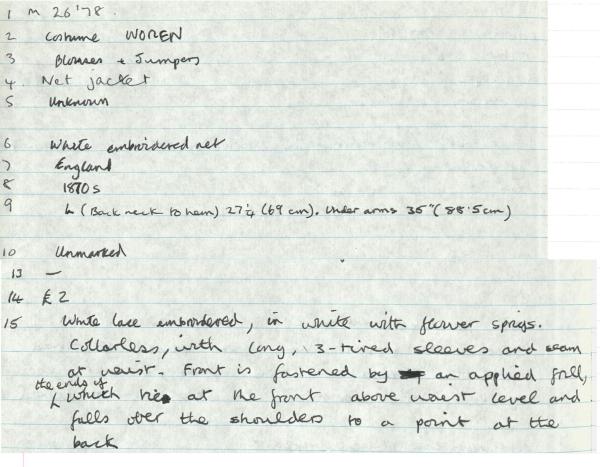 1 M 26'78.
2 Costume WOMEN
3 Blouses + Jumpers
4. Net jacket
5 Unknown
6 White embroidered net
7 England
8 1870s
9 L (Back neck to hem) 27¼ (69 cm). Under arms 35" (88.5cm)
10 Unmarked
13 —
14 £2
15 White lace embroidered, in white with flower sprigs.
Collarless, with long, 3-tired sleeves and seam
at waist. Front is fastened by an applied frill,
the ends of which tie at the front above waist level and
falls over the shoulders to a point at the
back